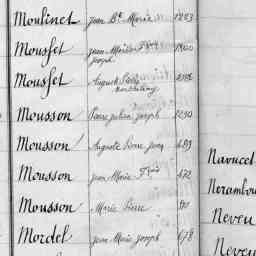 Moulinet Jean Bte Marie 1203
Mousset Jean Fçois
Joseph
Mousset Auguste
Mousson Pierre Julien Joseph 1290
Mousson Auguste Pierre Jean 689
Mousson Jean Marie Fçois 672
Mousson Marie Pierre
Mordel Jean Marie Joseph 678
Navucel
Nerambou
Neveu
Neveu